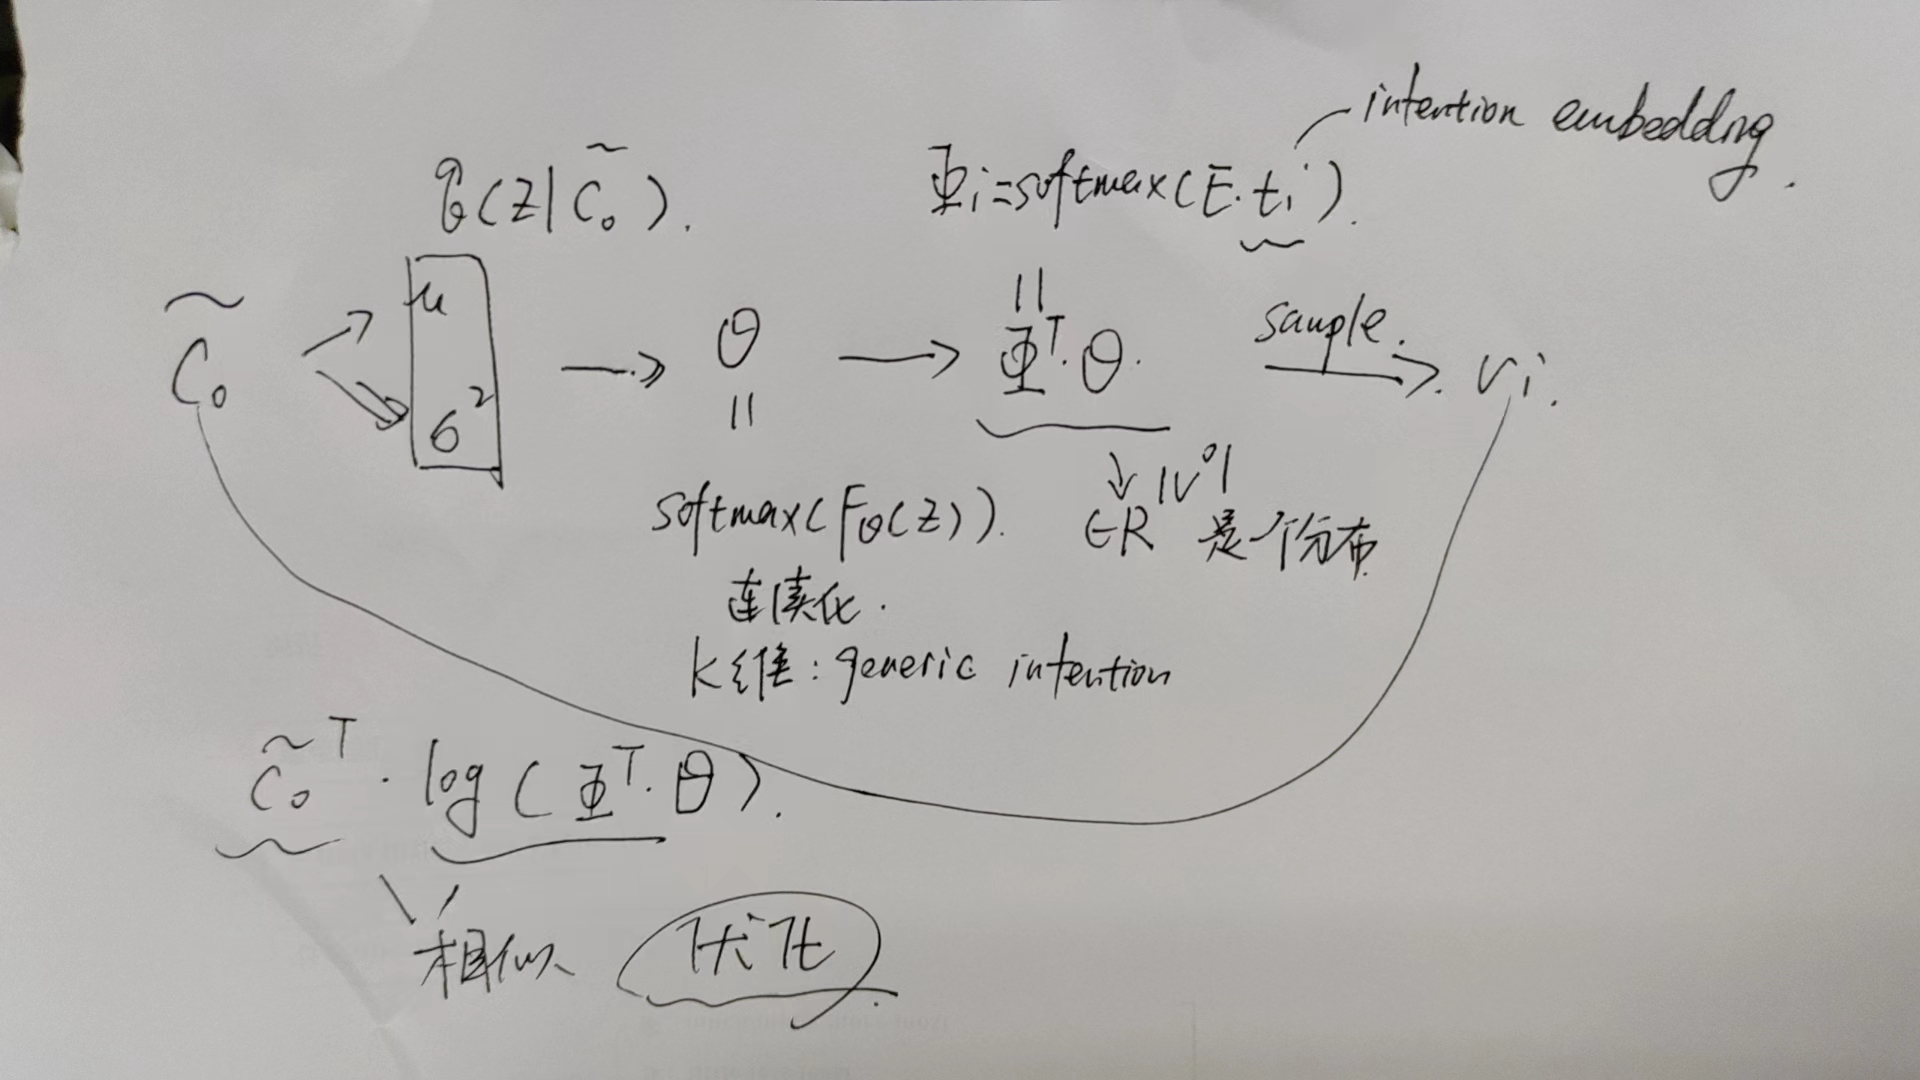 intention embeddng.
q_θ(Z|C̃₀).
Φi=softmax(E·ti).
C̃₀ → μ σ² → θ → Φᵀ·θ. sample. → vi.
||
||
softmax(Fθ(Z)).
↓ ∈R^|V⁰| 是一个分布
连续化.
K维:generic intention
C̃₀ᵀ · log(Φᵀ·θ).
相似 优化